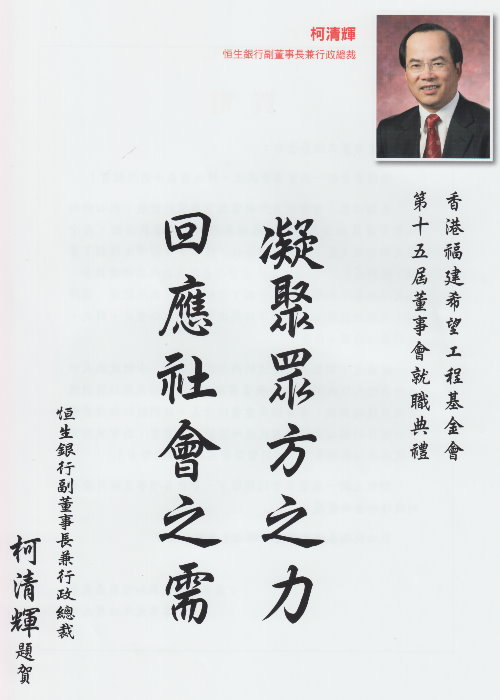 柯清輝
恒生銀行副董事長兼行政總裁
香港福建希望工程基金會
第十五屆董事會就職典禮
凝聚眾方之力
回應社會之需
恒生銀行副董事長兼行政總裁
柯清輝題賀